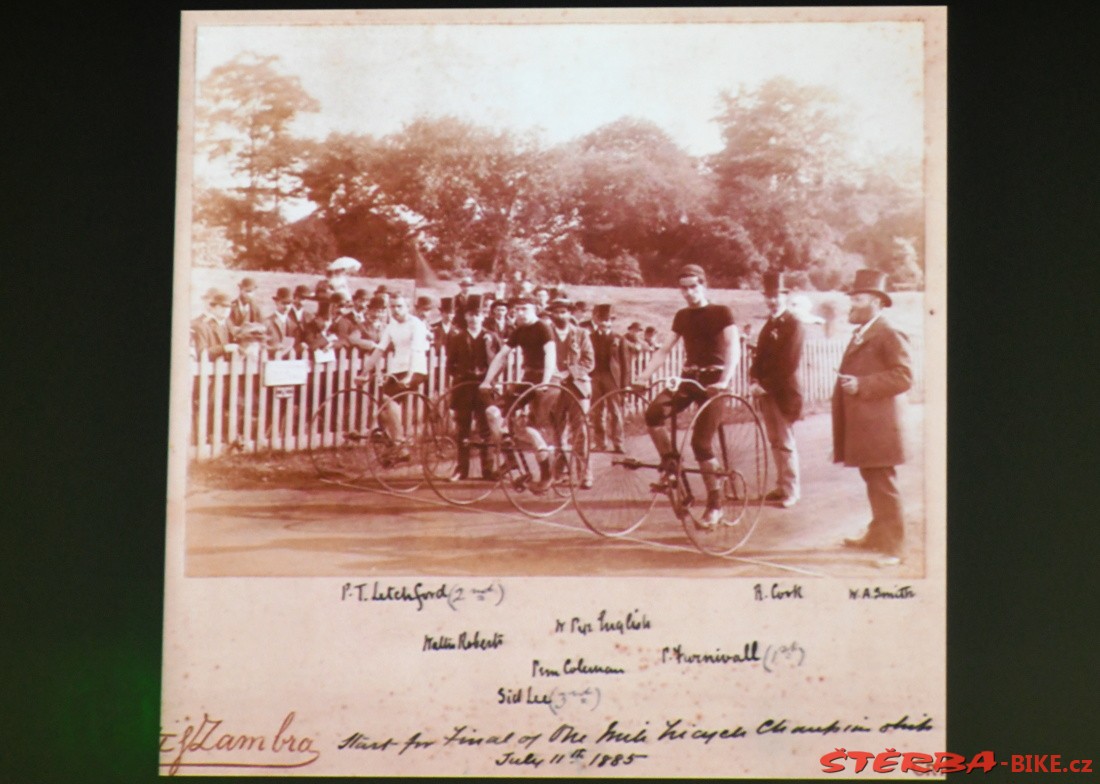 P.T. Letchford (2nd) R. Cook W.A. Smith
W Pye English
Walter Roberts P. Furnivall (1st)
Pem Coleman
Sid Lee (3rd)
Zambra Start for Final of One Mile Tricycle Championship
July 11th 1885
ŠTĚRBA-BIKE.cz
9